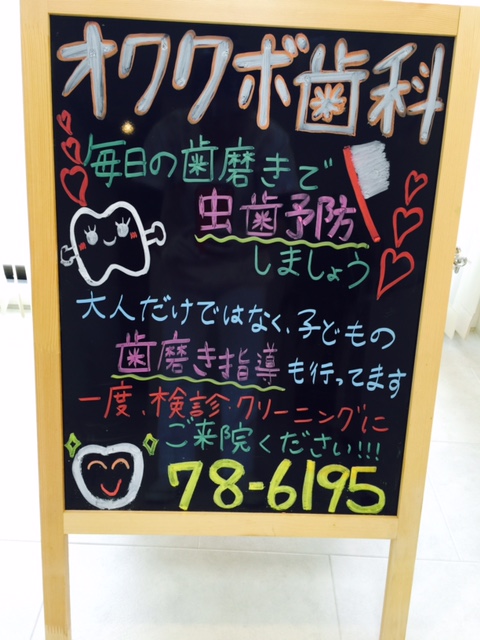 オワクボ歯科
毎日の歯磨きで
虫歯予防
しましょう
大人だけではなく、子どもの
歯磨き指導も行ってます
一度、検診・クリーニングに
ご来院ください!!!
78-6195